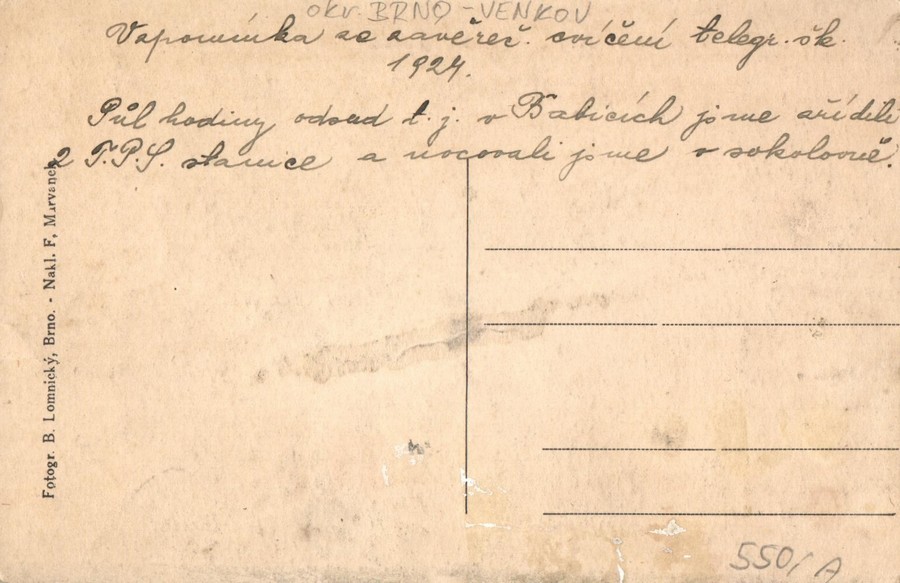 okr. BRNO-VENKOV
Vzpomínka ze závěreč. cvičení telegr. šk.
1924.
Půl hodiny odsud t. j. v Babicích jsme zřídili
2 T.P.S. stanice a nocovali jsme v sokolovně.
Fotogr. B. Lomnický, Brno. - Nakl. F, Marvanek
550/A